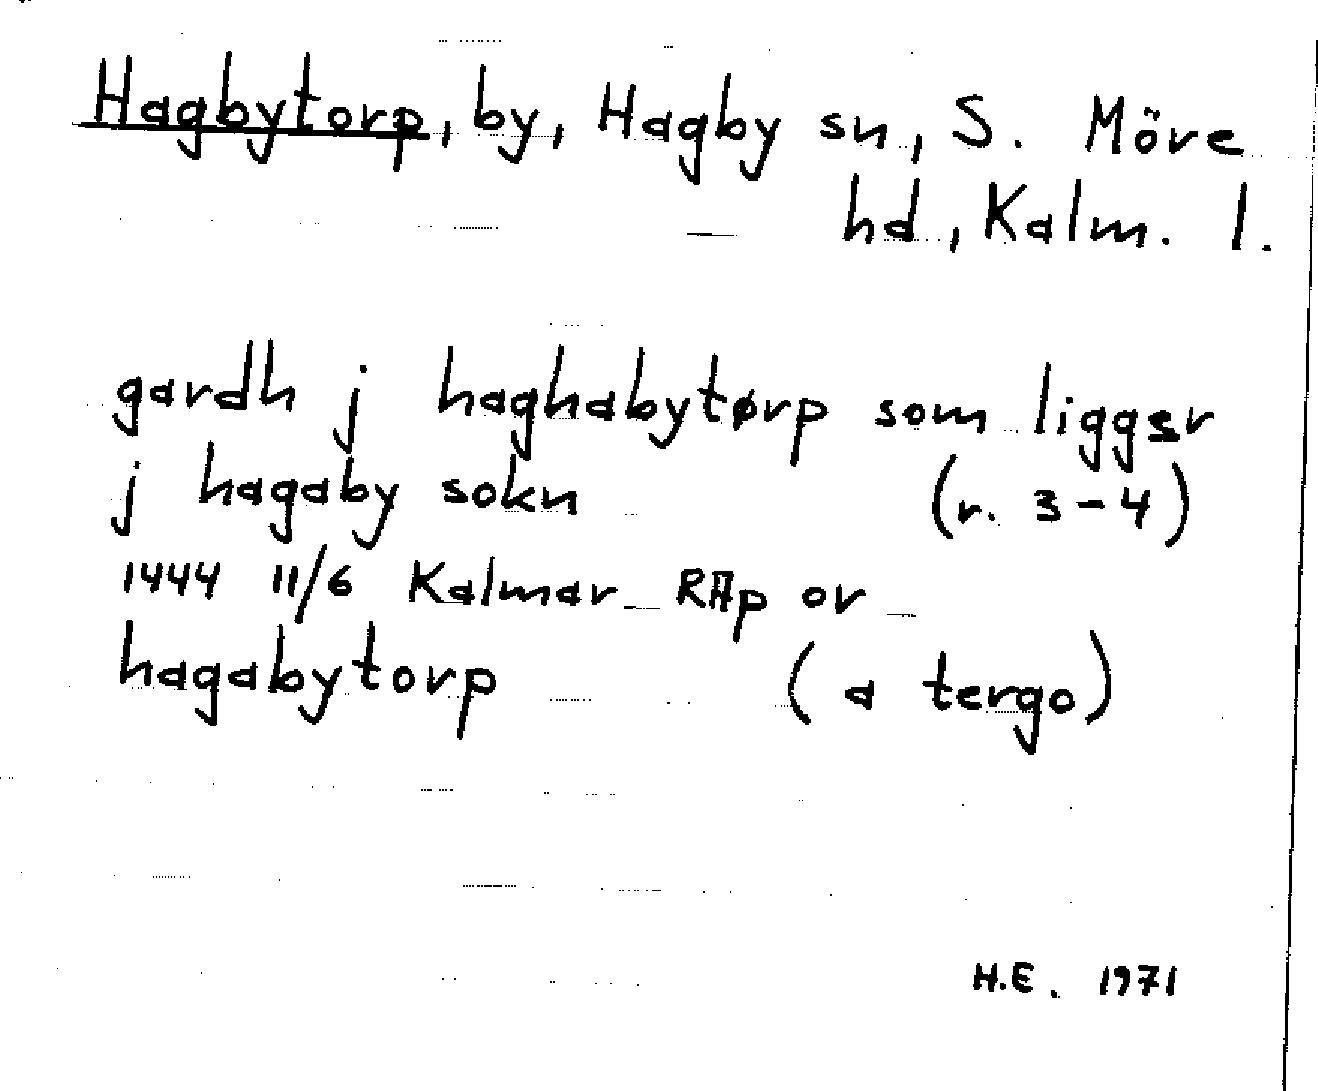 Hagbytorp, by, Hagby sn, S. Möre
hd, Kalm. l.
gardh j haghabytørp som ligger
j hagaby sokn (r. 3-4)
1444 11/6 Kalmar RAp or
hagabytorp (a tergo)
H.E. 1971